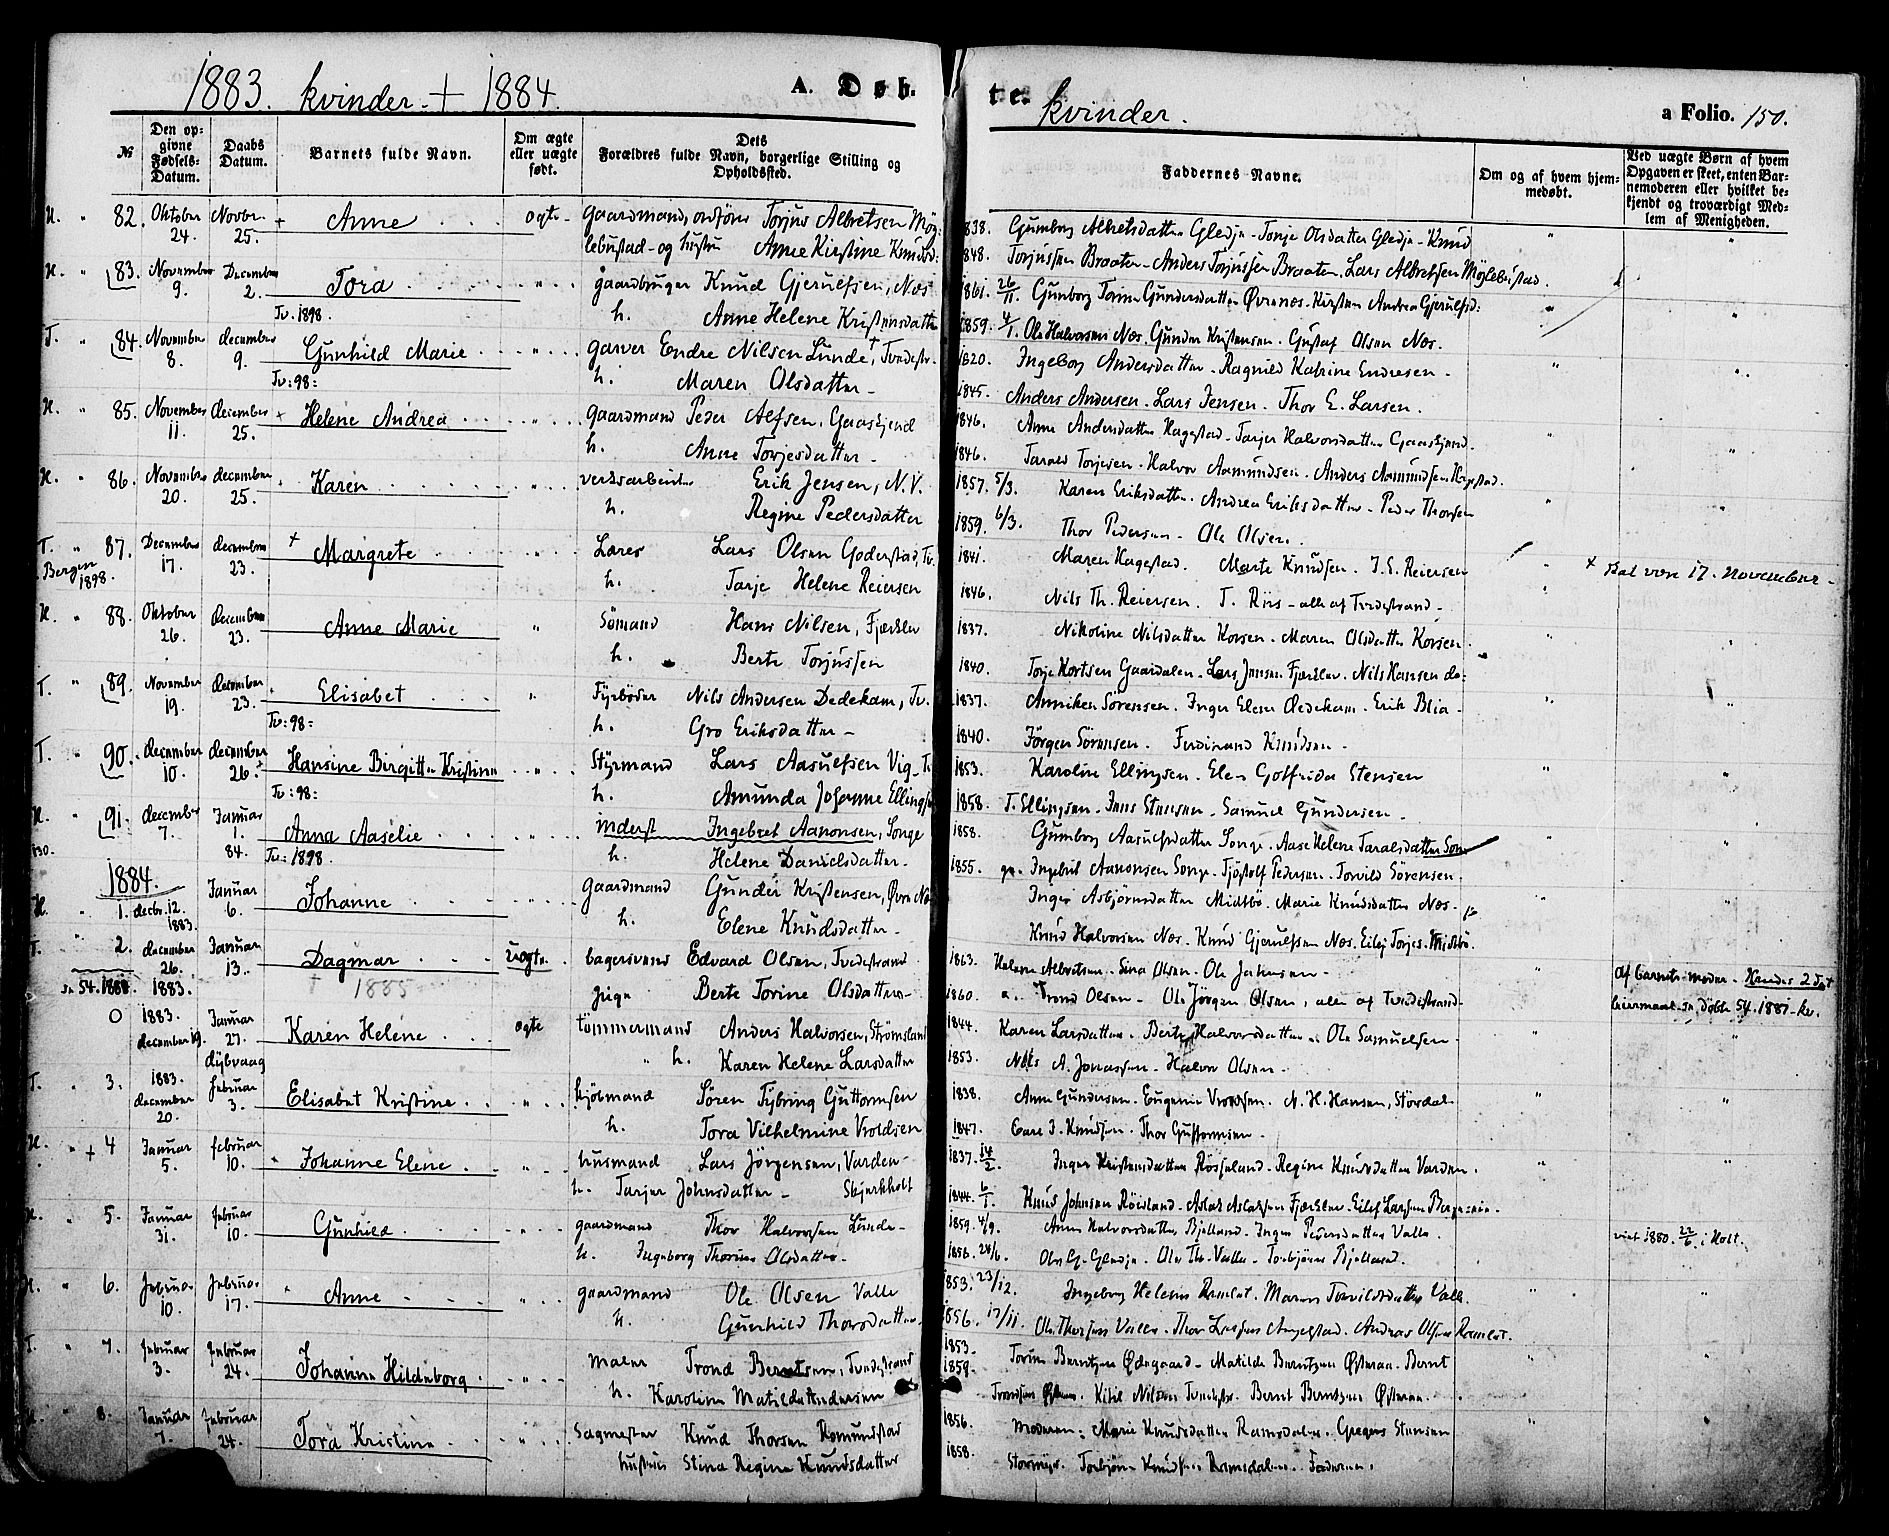 1883. kvinder + 1884.
A. Døb-
te.
kvinder.
a Folio. 150.
№
Den op-
givne
Fødsels-
Datum.
Daabs
Datum.
Barnets fulde Navn.
Om ægte
eller uægte
født.
Dets
Forældres fulde Navn, borgerlige Stilling og
Opholdssted.
Faddernes Navne.
Om og af hvem hjem-
medøbt.
Ved uægte Børn af hvem
Opgaven er skeet, enten Bar-
nemoderen eller hvilket be-
kjendt og troværdigt Med-
lem af Menigheden.
H. " 82. Oktober 24. Novbr. 25. + Anne ægte gaardmand, ordförer Torjus Albretsen Møg-
lebustad - og hustru Anne Kirstine Knudsd:
1838. Gumborg Albretsdatter Gledje - Tonje Olsdatter Gledje - Knud
1848. Torjussen Braaten - Anders Torjussen Braaten. Lars Albretsen Møglebustad.
H. " 83. November 9. December 2. Tora " gaardbruger Knud Gjerulfsen, Næs
Tv. 1898. h. Anne Helene Kristensdatter
1861. 26/11. Gunborg Torine Gundersdatter Øvrenæs. Kirsten Andrea Gjerulfsd:
1859. 4/1. Ole Halvorsen Næs. Gunder Kristensen. Gustaf Olsen Næs.
T. " 84. November 8. december 9. Gunhild Marie " garver Endre Nilsen Lunde, Tvedestr.
Tv: 98: h. Maren Olsdatter -
1820. Ingeborg Andersdatter - Ragnild Katrine Endresen -
1845. Anders Andersen. Lars Jensen. Thor E. Larsen.
H. " 85. November 11. december 25. + Helene Andrea " gaardmand Peder Alfsen, Gaaskjend
h. Anne Torjesdatter -
1846. Anne Andersdatter Hagestad - Tarjer Halvorsdatter Gaaskjend.
1846. Tarald Torjesen. Halvor Aamundsen. Anders Aamundsen Hagestad.
H. " 86. November 20. december 25. Karen " verksarbeider Erik Jensen, N.V.
h. Regine Pedersdatter
1857. 5/3. Karen Eriksdatter. Andrea Eriksdatter - Peder Thorsen
1859. 6/3. Thor Pedersen - Ole Olsen.
T. " 87. December 17. december 23. + Margrete " Lærer Lars Olsen Goderstad, Tv.
Bergen 1898. h. Tarje Helene Reiersen
1841. Maren Hagestad. Marte Knudsen. J. E. Reiersen
+ skal være 17. November -
1846. Nils Th. Reiersen. T. Riis - alle af Tvedestrand -
H. " 88. Oktober 26. December 23. Anne Marie " Sömand Hans Nilsen, Fjærkler
h. Berte Torjussen
1837. Nikoline Nilsdatter Korsen. Maren Olsdatter Korsen.
1840. Torje Kortsen Gaardalen. Lars Jensen Fjærkler. Nils Hansen do:
T. " 89. November 19. December 23. Elisabet " Fyrböder Nils Andersen Dedekam, Tv.
Tv: 98: h. Gro Eriksdatter -
1837. Anniken Sörensen. Inger Elene Dedekam. Erik Blia -
1840. Jörgen Sörensen. Ferdinand Knudsen -
T. " 90. december 10. december 26. Hansine Birgitte Kristine " Styrmand Lars Aasulfsen Vig - Tv
Tv: 98: h. Amunda Johanne Ellingsen
1853. Karoline Ellingsen. Elen Gotfrida Stensen
1858. T. Ellingsen. Jens Stensen. Samuel Gundersen.
H. " 91. december 7. Januar 1. 84. Anna Aaselie " inderst Ingebret Aanonsen, Songe
Tv: 1898. h. Helene Danielsdatter -
1858. Gumborg Aasulfsdatter Songe. Aase Helene Taralsdatter Son-
1855. ge. Ingebret Aanonsen Songe. Tjöstolf Pedersen. Torvild Sörensen.
1884.
H. " 1. decbr. 12. 1883. Januar 6. Johanne " gaardmand Gunder Kristensen, Øvre Næs
h. Elene Knudsdatter -
Inger Asbjörnsdatter Midtbö. Marie Knudsdatter Næs -
Knud Halvorsen Næs. Knud Gjerulfsen Næs. Eilef Torjes. Midtbö.
T. " 2. december 26. 1883. Januar 13. Dagmar uægte bagersvend Edvard Olsen, Tvedestrand
1885
se 54. 1881. pige Berte Torine Olsdatter -
1863. Helene Albretsen. Sina Olsen. Ole Jahnsen -
Af barnets moder - Kendes 2det
1860. Trond Olsen - Ole Jörgen Olsen, alle af Tvedestrand -
leiermaal. se döbte 54. 1881 - kv.
0 1883. december 19. Januar 27. dÿbvaag Karen Helene ægte tömmermand Anders Halvorsen, Strömsland
" h. Karen Helene Larsdatter
1844. Karen Larsdatter. Berte Halvorsdatter. Ole Samuelsen.
1853. Nils A. Jonassen - Halvor Olsen -
T. " 3. 1883. december 20. februar 3. Elisabet Kristine " kjöbmand Sören Tybring Guttormsen
h. Tora Vilhelmine Vroldsen
1838. Anne Gundersen. Eugenie Vroldsen. N. H. Hansen, Stövdal
1847. I. Knudsen. Thor Guttormsen -
H. " + 4 Januar 5. februar 10. Johanne Elene " husmand Lars Jörgensen, Varden-
h. Tarjer Johnsdatter - Skjerkholt
1837. 14/2. Inger Kristensdatter Rösjeland - Regine Knudsdatter Varden.
1844. 6/1. Knud Johnsen Röisland. Aslak Aslaksen Fjærkler. Eilef Larsen
H. " 5. Januar 31. februar 10. Gunhild " gaardmand Thor Halvorsen Lunde -
h. Ingeborg Thorine Olsdatter -
1859. 4/9. Anne Halvorsdatter Bjelland. Inger Pedersdatter Valle.
viet 1880. 22/6. i Holt.
1856. 24/6. Ole G. Gledje. Ole Th. Valle. Torbjörn Bjelland.
H. " 6. februar 10. februar 17. Anne " gaardmand Ole Olsen Valle
h. Gunhild Thorsdatter
1853. 23/12. Ingeborg Helene Ramlet. Maren Torvildsdatter Valle.
1856. 17/11. Ole Thorsen Valle. Thor Larsen Angelstad. Andreas Olsen Ramlet.
T. " 7. februar 3. februar 24. Johanne Hildeborg " maler Trond Berntsen, Tvedestrand
h. Karoline Matilde Andersen
1853. Torine Berntsen Ødegaard - Matilde Berntsen Østeraa. Bernt
1859. Trondsen Østeraa. Kitil Nilsen Tvedestr. Bernt Berntsen Østeraa.
H. " 8. Januar 7. februar 24. Tora Kristine " Sagmester Knud Thorsen Romundstad
hustru Stina Regine Knudsdatter
1856. Moderen: Marie Knudsdatter Ramsdalen. Gregers Stensen
1858. Stormyr. Torbjörn Knudsen Ramsdalen. Faderen.